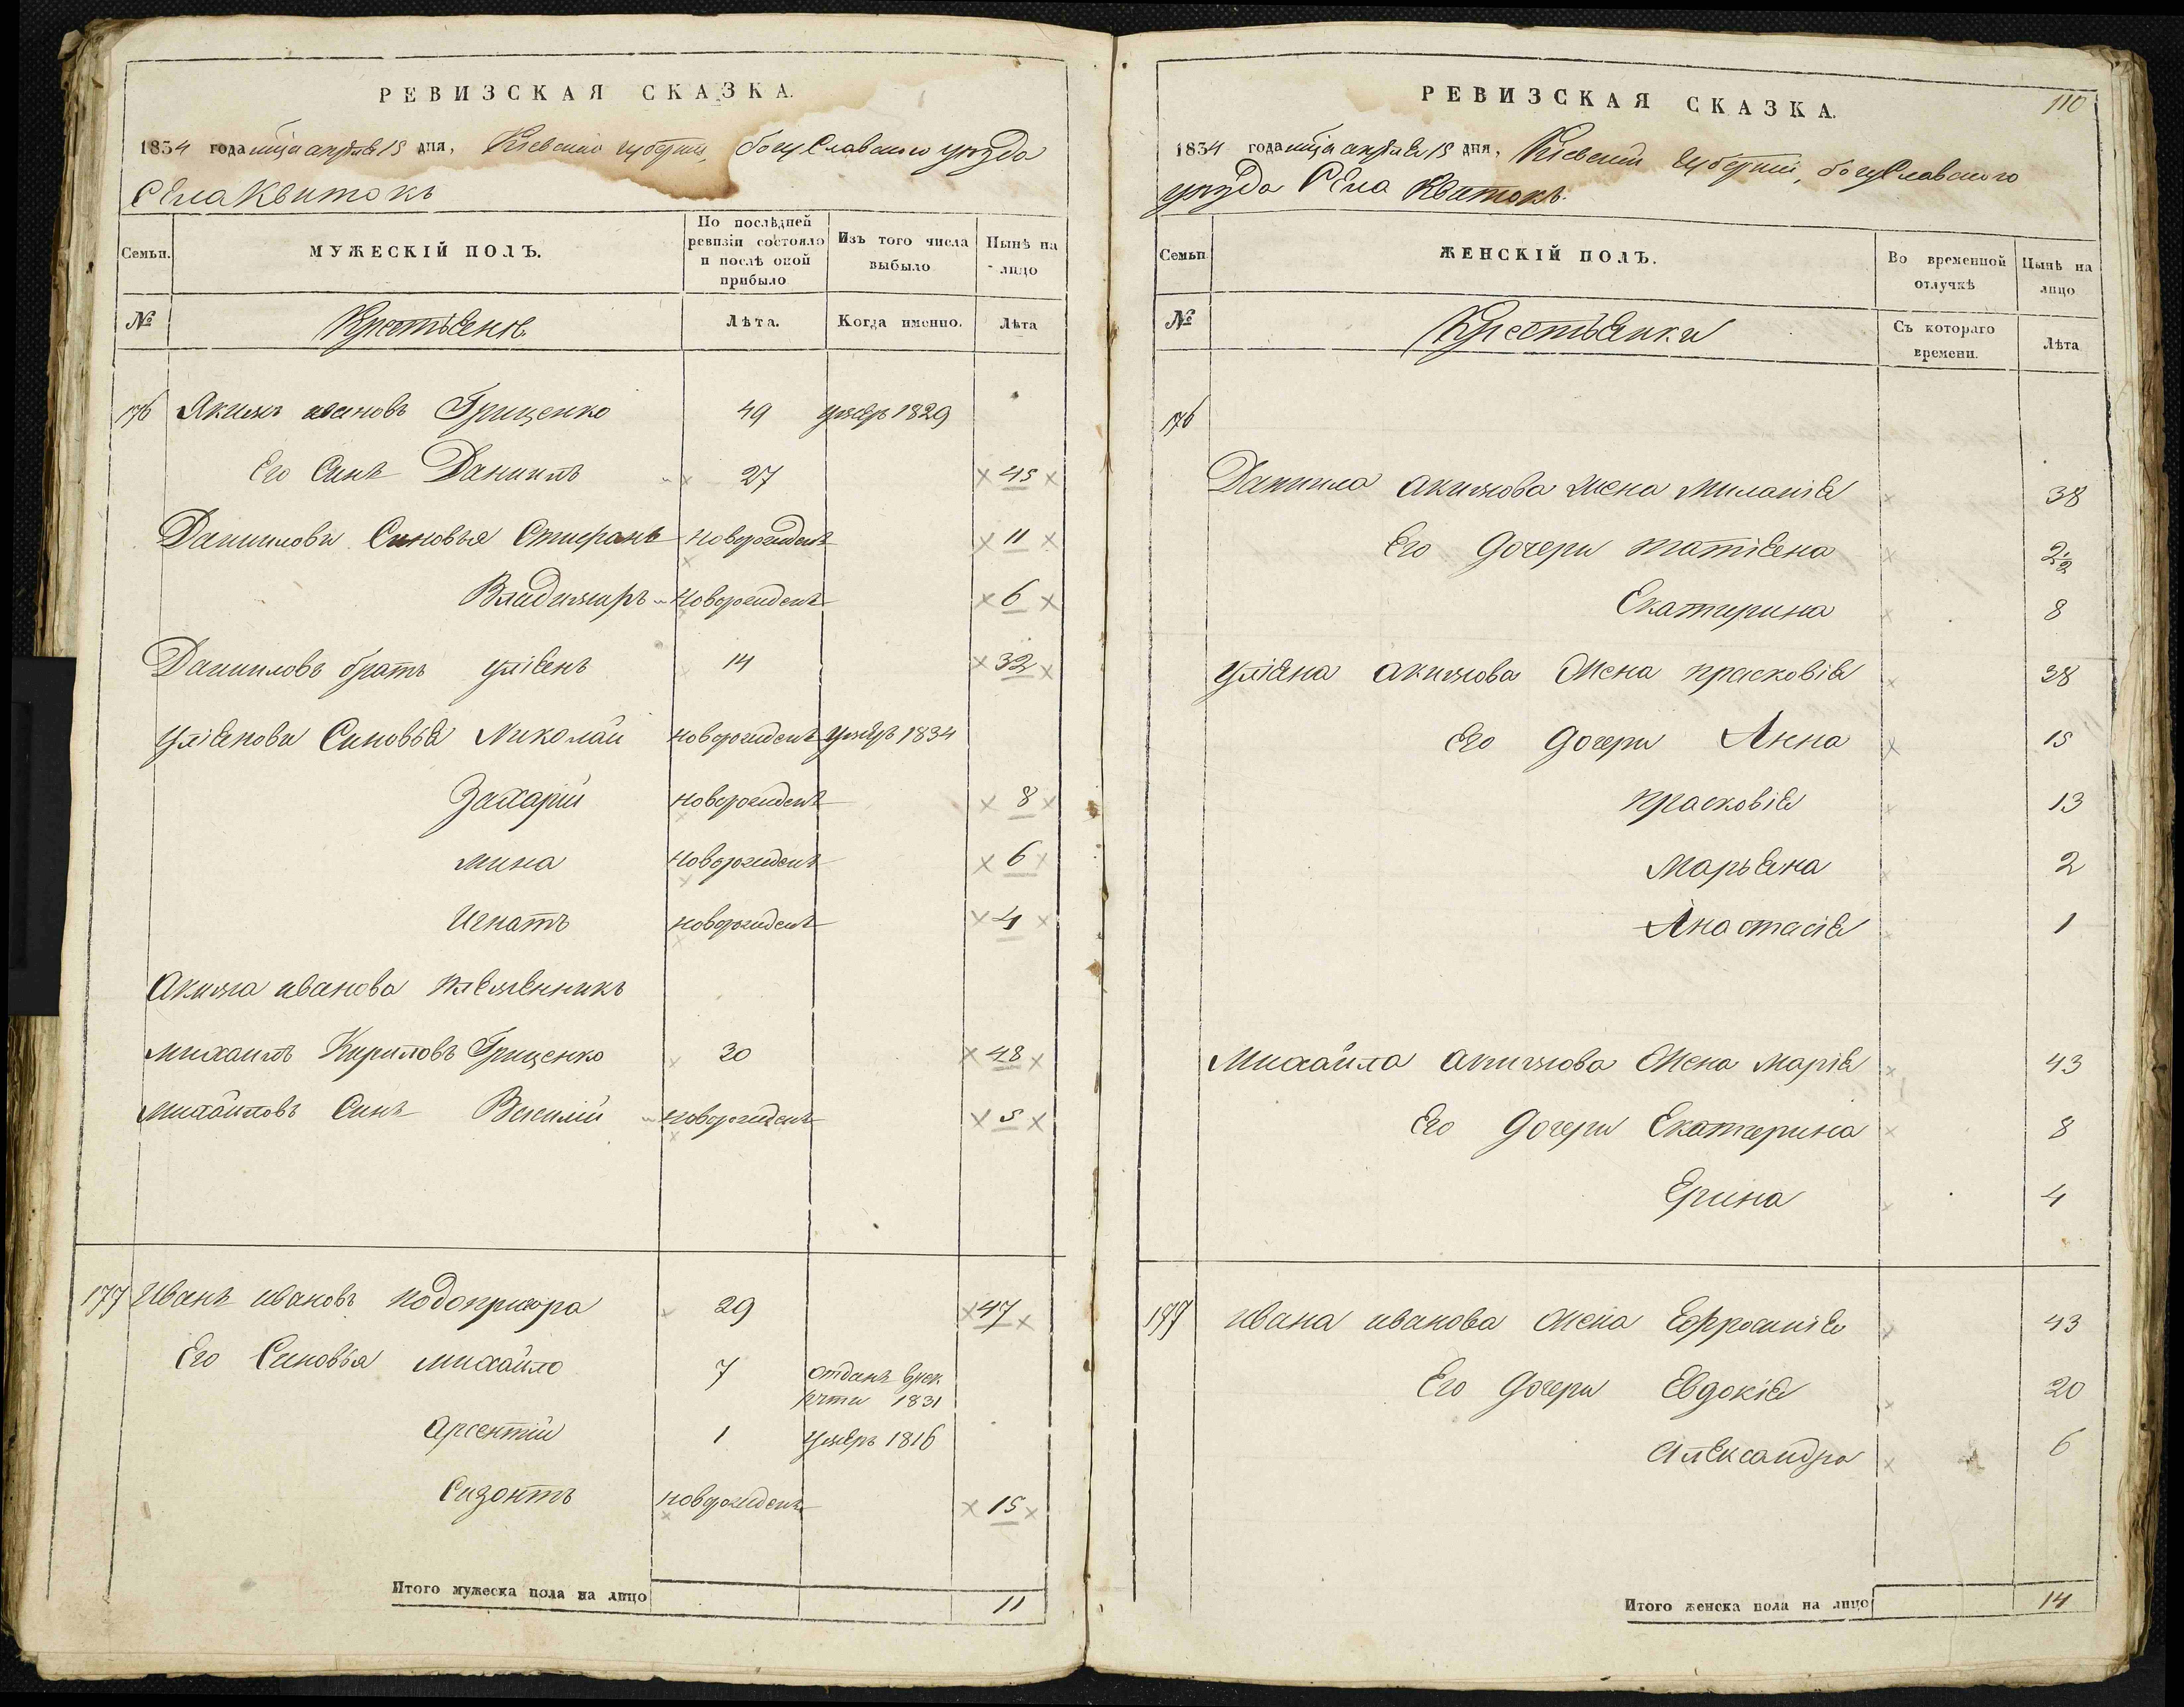 РЕВИЗСКАЯ СКАЗКА.
1834 года мца апреля 15 дня, Киевской губернии, богуславского уезда
села Квитокъ
Семьи. МУЖЕСКІЙ ПОЛЪ. По послѣдней ревизіи состояло и послѣ оной прибыло Изъ того числа выбыло Нынѣ на лицо
№ Крестьяне Лѣта. Когда именно. Лѣта
176 Якимъ ивановъ Грищенко 49 умеръ 1829
Его Синъ Даниилъ 27 45
Данииловы Сыновья Стефанъ новорожденъ 11
Владимиръ новорожденъ 6
Данииловъ братъ улiянъ 14 32
Улiянови Синовья Николай новорожденъ умеръ 1834
Захарій новорожденъ 8
мина новорожденъ 6
Игнатъ новорожденъ 4
Акима иванова племянникъ
михаилъ Кириловъ Грищенко 30 48
михайловъ Синъ Василий новорожденъ 5
177 Иванъ ивановъ подопригора 29 47
Его Синовья михайло 7 отданъ врек
руты 1831
арсентий 1 умеръ 1816
Сизонтъ новорожденъ 15
Итого мужеска пола на лицо 11
РЕВИЗСКАЯ СКАЗКА. 110
1834 года мца апреля 15 дня, Киевской губернии, богуславского
уезда Села Квитокъ.
Семьи ЖЕНСКІЙ ПОЛЪ. Во временной отлучкѣ Нынѣ на лицо
№ Крестьянки Съ котораго времени. Лѣта
176
Даниила акимова жена миланiя 38
Его дочери татiяна 2½
Екатерина 8
Улiяна акимова Жена прасковiя 38
Его дочери Анна 15
прасковiя 13
марьяна 2
Анастасiя 1
Михайла акимова Жена марiя 43
Его дочери Екатерина 8
Ерина 4
177 ивана иванова Жена Ефросинiя 43
Его дочери Евдокiя 20
александра 6
Итого женска пола на лицо 14